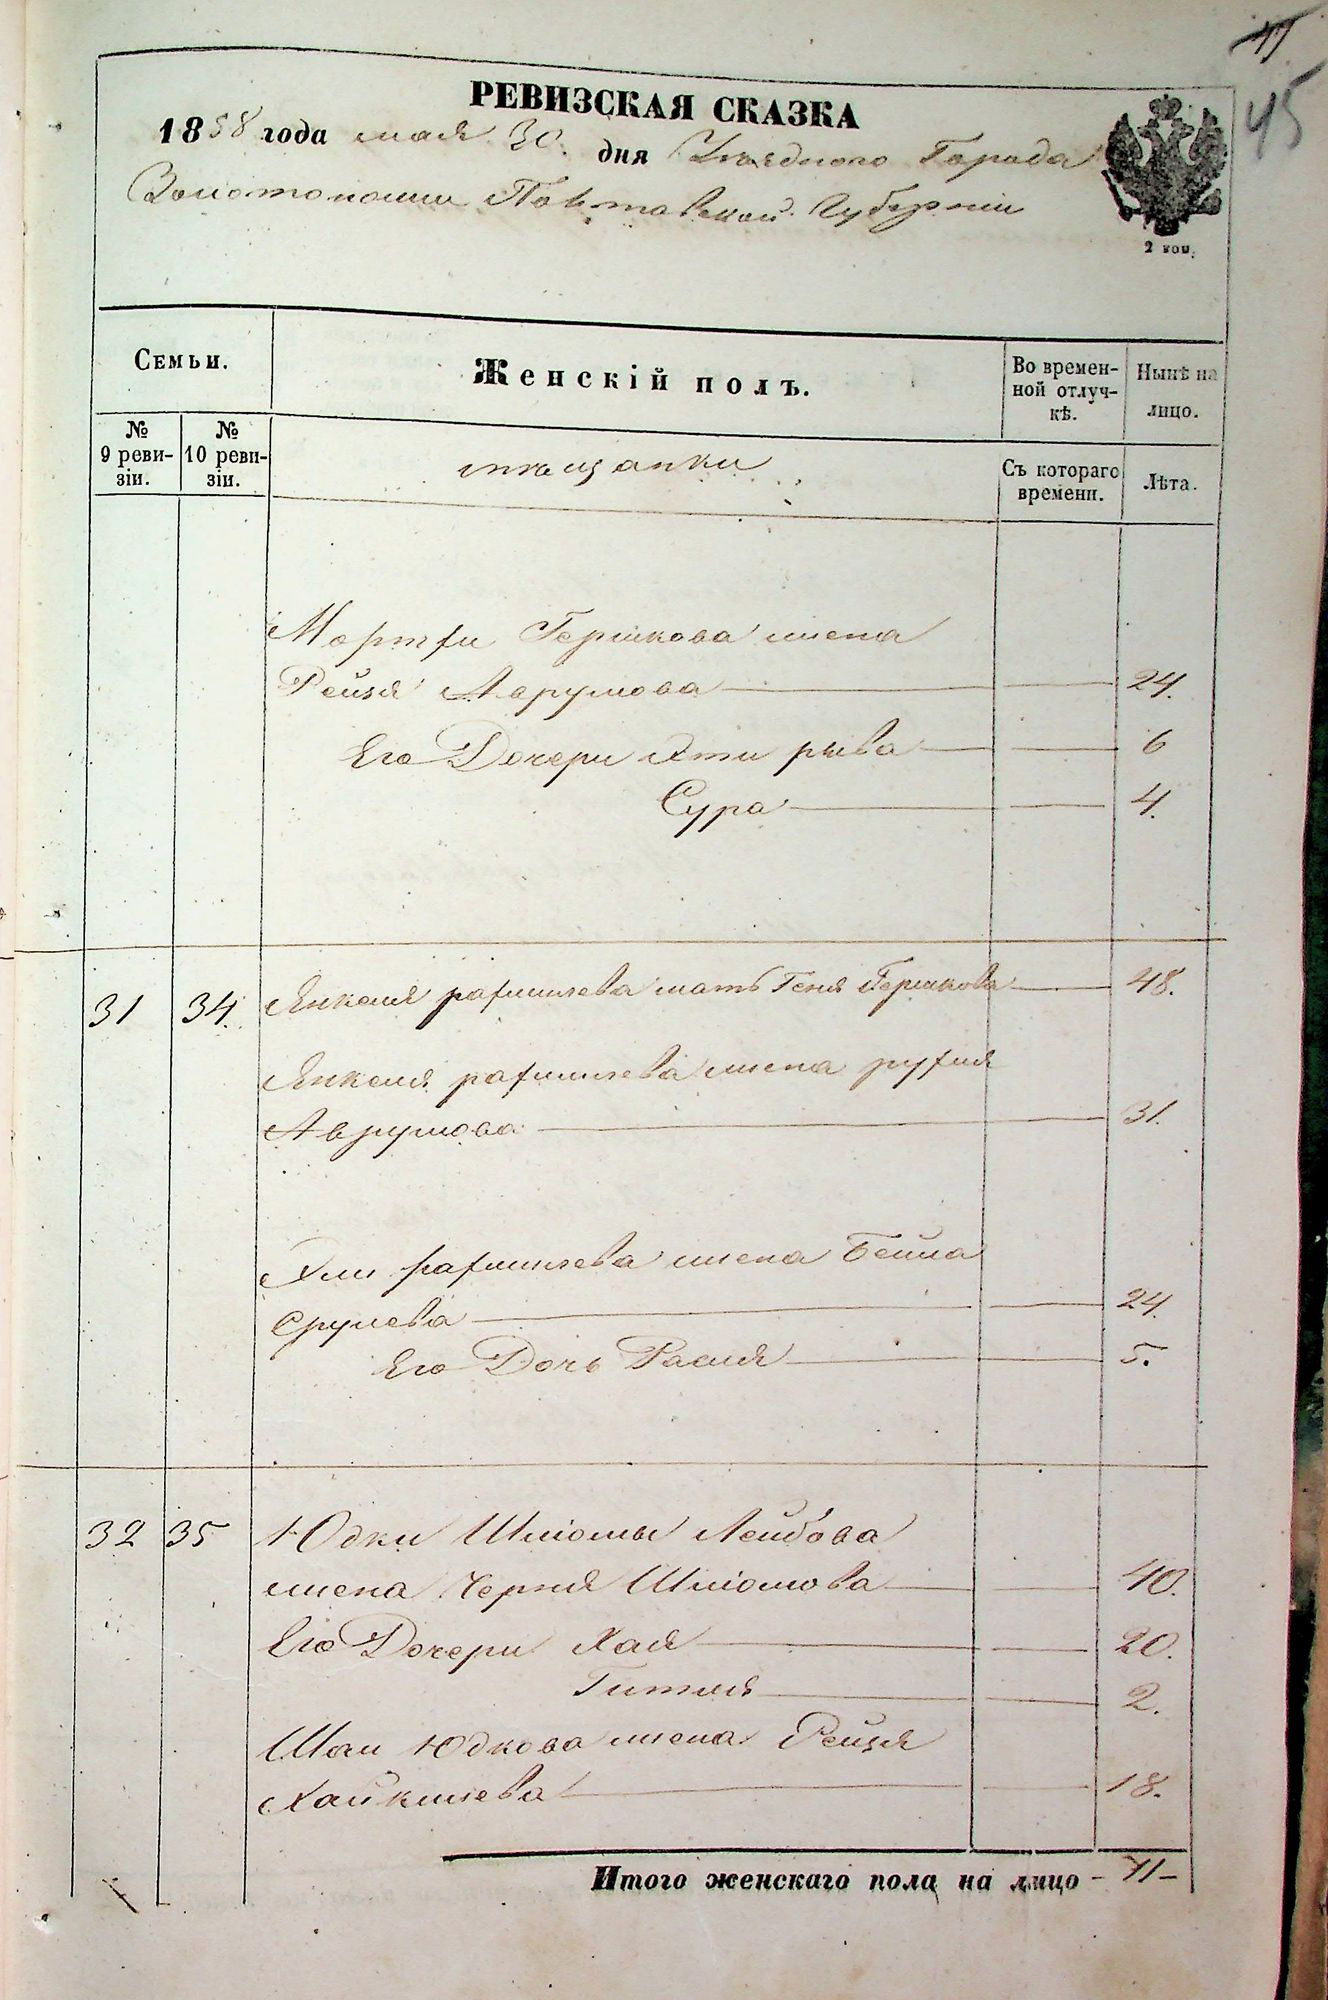 45
РЕВИЗСКАЯ СКАЗКА
1858 года мая 30. дня Уѣзднаго Города
Золотоноши Полтавской Губерніи
2 коп.
Семьи.
Женскій полъ.
Во времен-
ной отлуч-
кѣ.
Нынѣ на
лицо.
№
9 реви-
зіи.
№
10 реви-
зіи.
мѣщанки
Съ котораго
времени.
Лѣта.
Гершкова жена
Рейзя Аврумова 24.
Его Дочери Эти рыва 6
Сура 4.
31 34. Янкеля рахмилева мать Геня Гершкова 48.
Янкеля рахмилева жена рухля
Аврумова 31.
рахмилева жена Бейла
Срулева 24.
Его Дочь Расия 5.
32 35 Юдки Шліомы Лейбова
жена Черня Шліомова 40.
Его Дочери Хая 20.
Гитля 2.
Юдкова жена Рейзя
Хайкилева 18.
Итого женскаго пола на лицо - 11 -